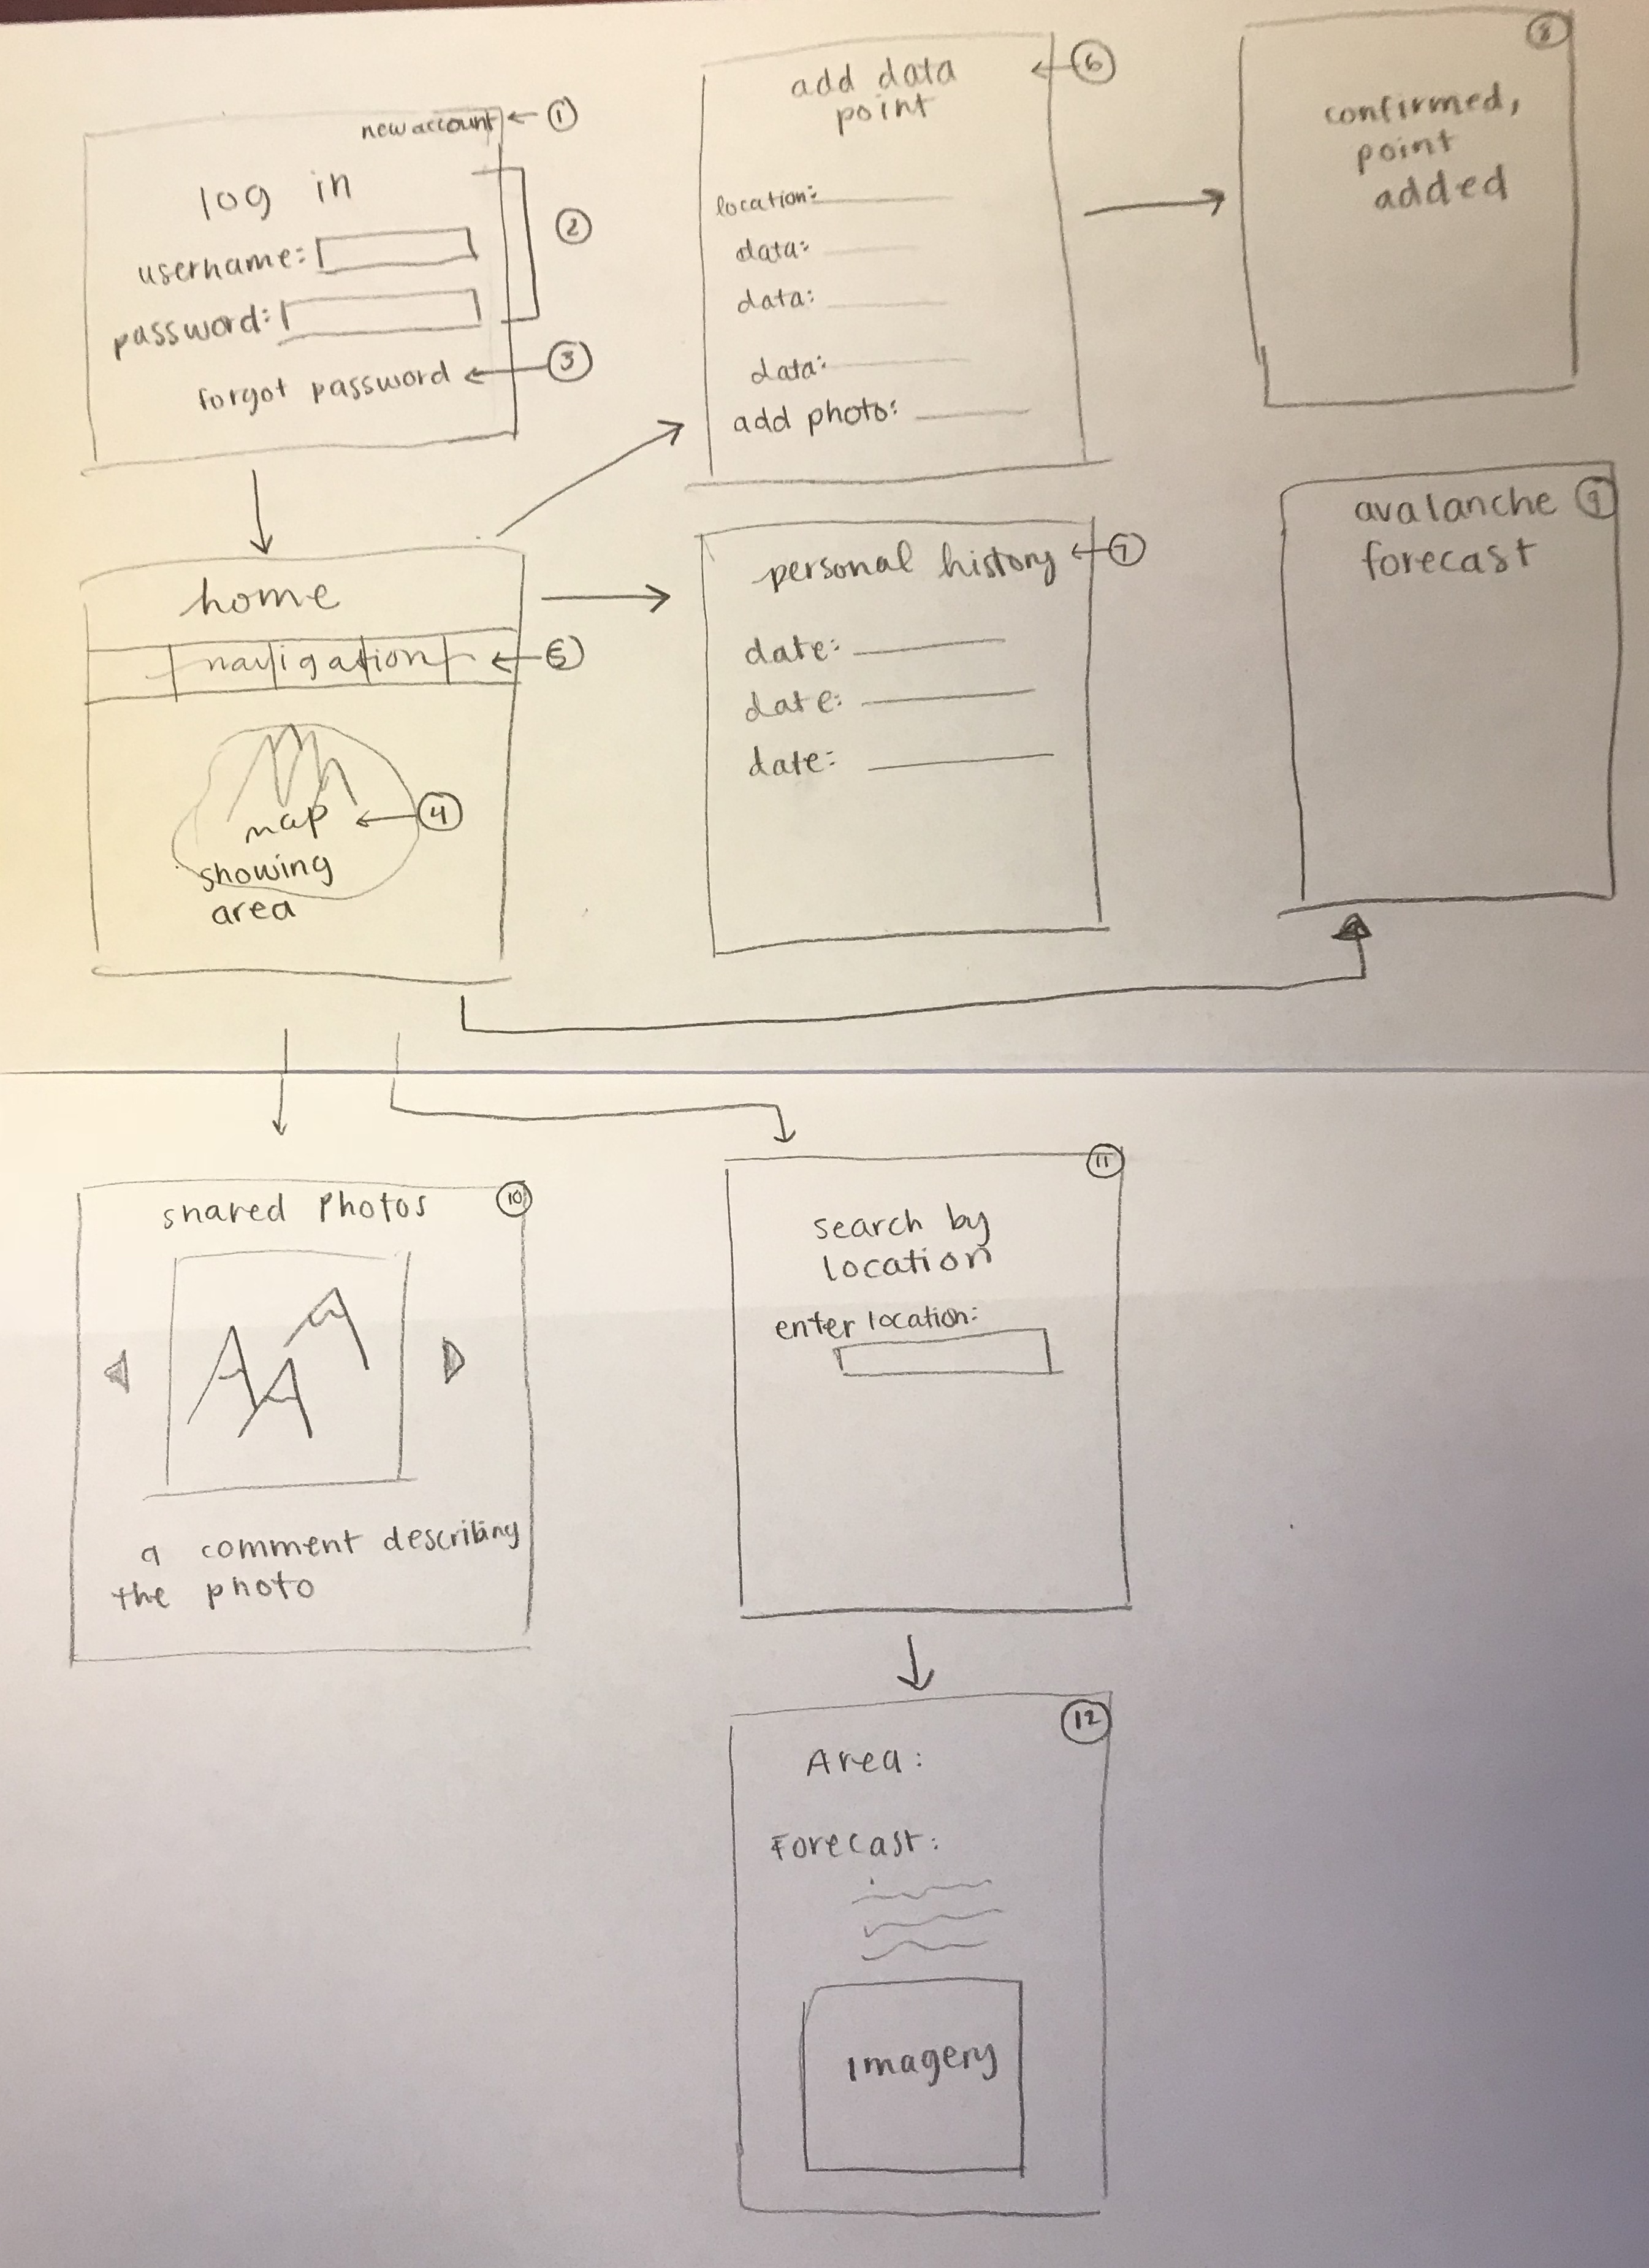 new account ← ①
log in
②
username:
password:
forgot password ← ③
add data ← ⑥
point
location:
data:
data:
data:
add photo:
⑧
confirmed,
point
added
home
navigation ← ⑤
map ← ④
showing
area
personal history ← ⑦
date:
date:
date:
avalanche ⑨
forecast
shared Photos ⑩
a comment describing
the photo
⑪
search by
location
enter location:
⑫
Area:
Forecast:
Imagery